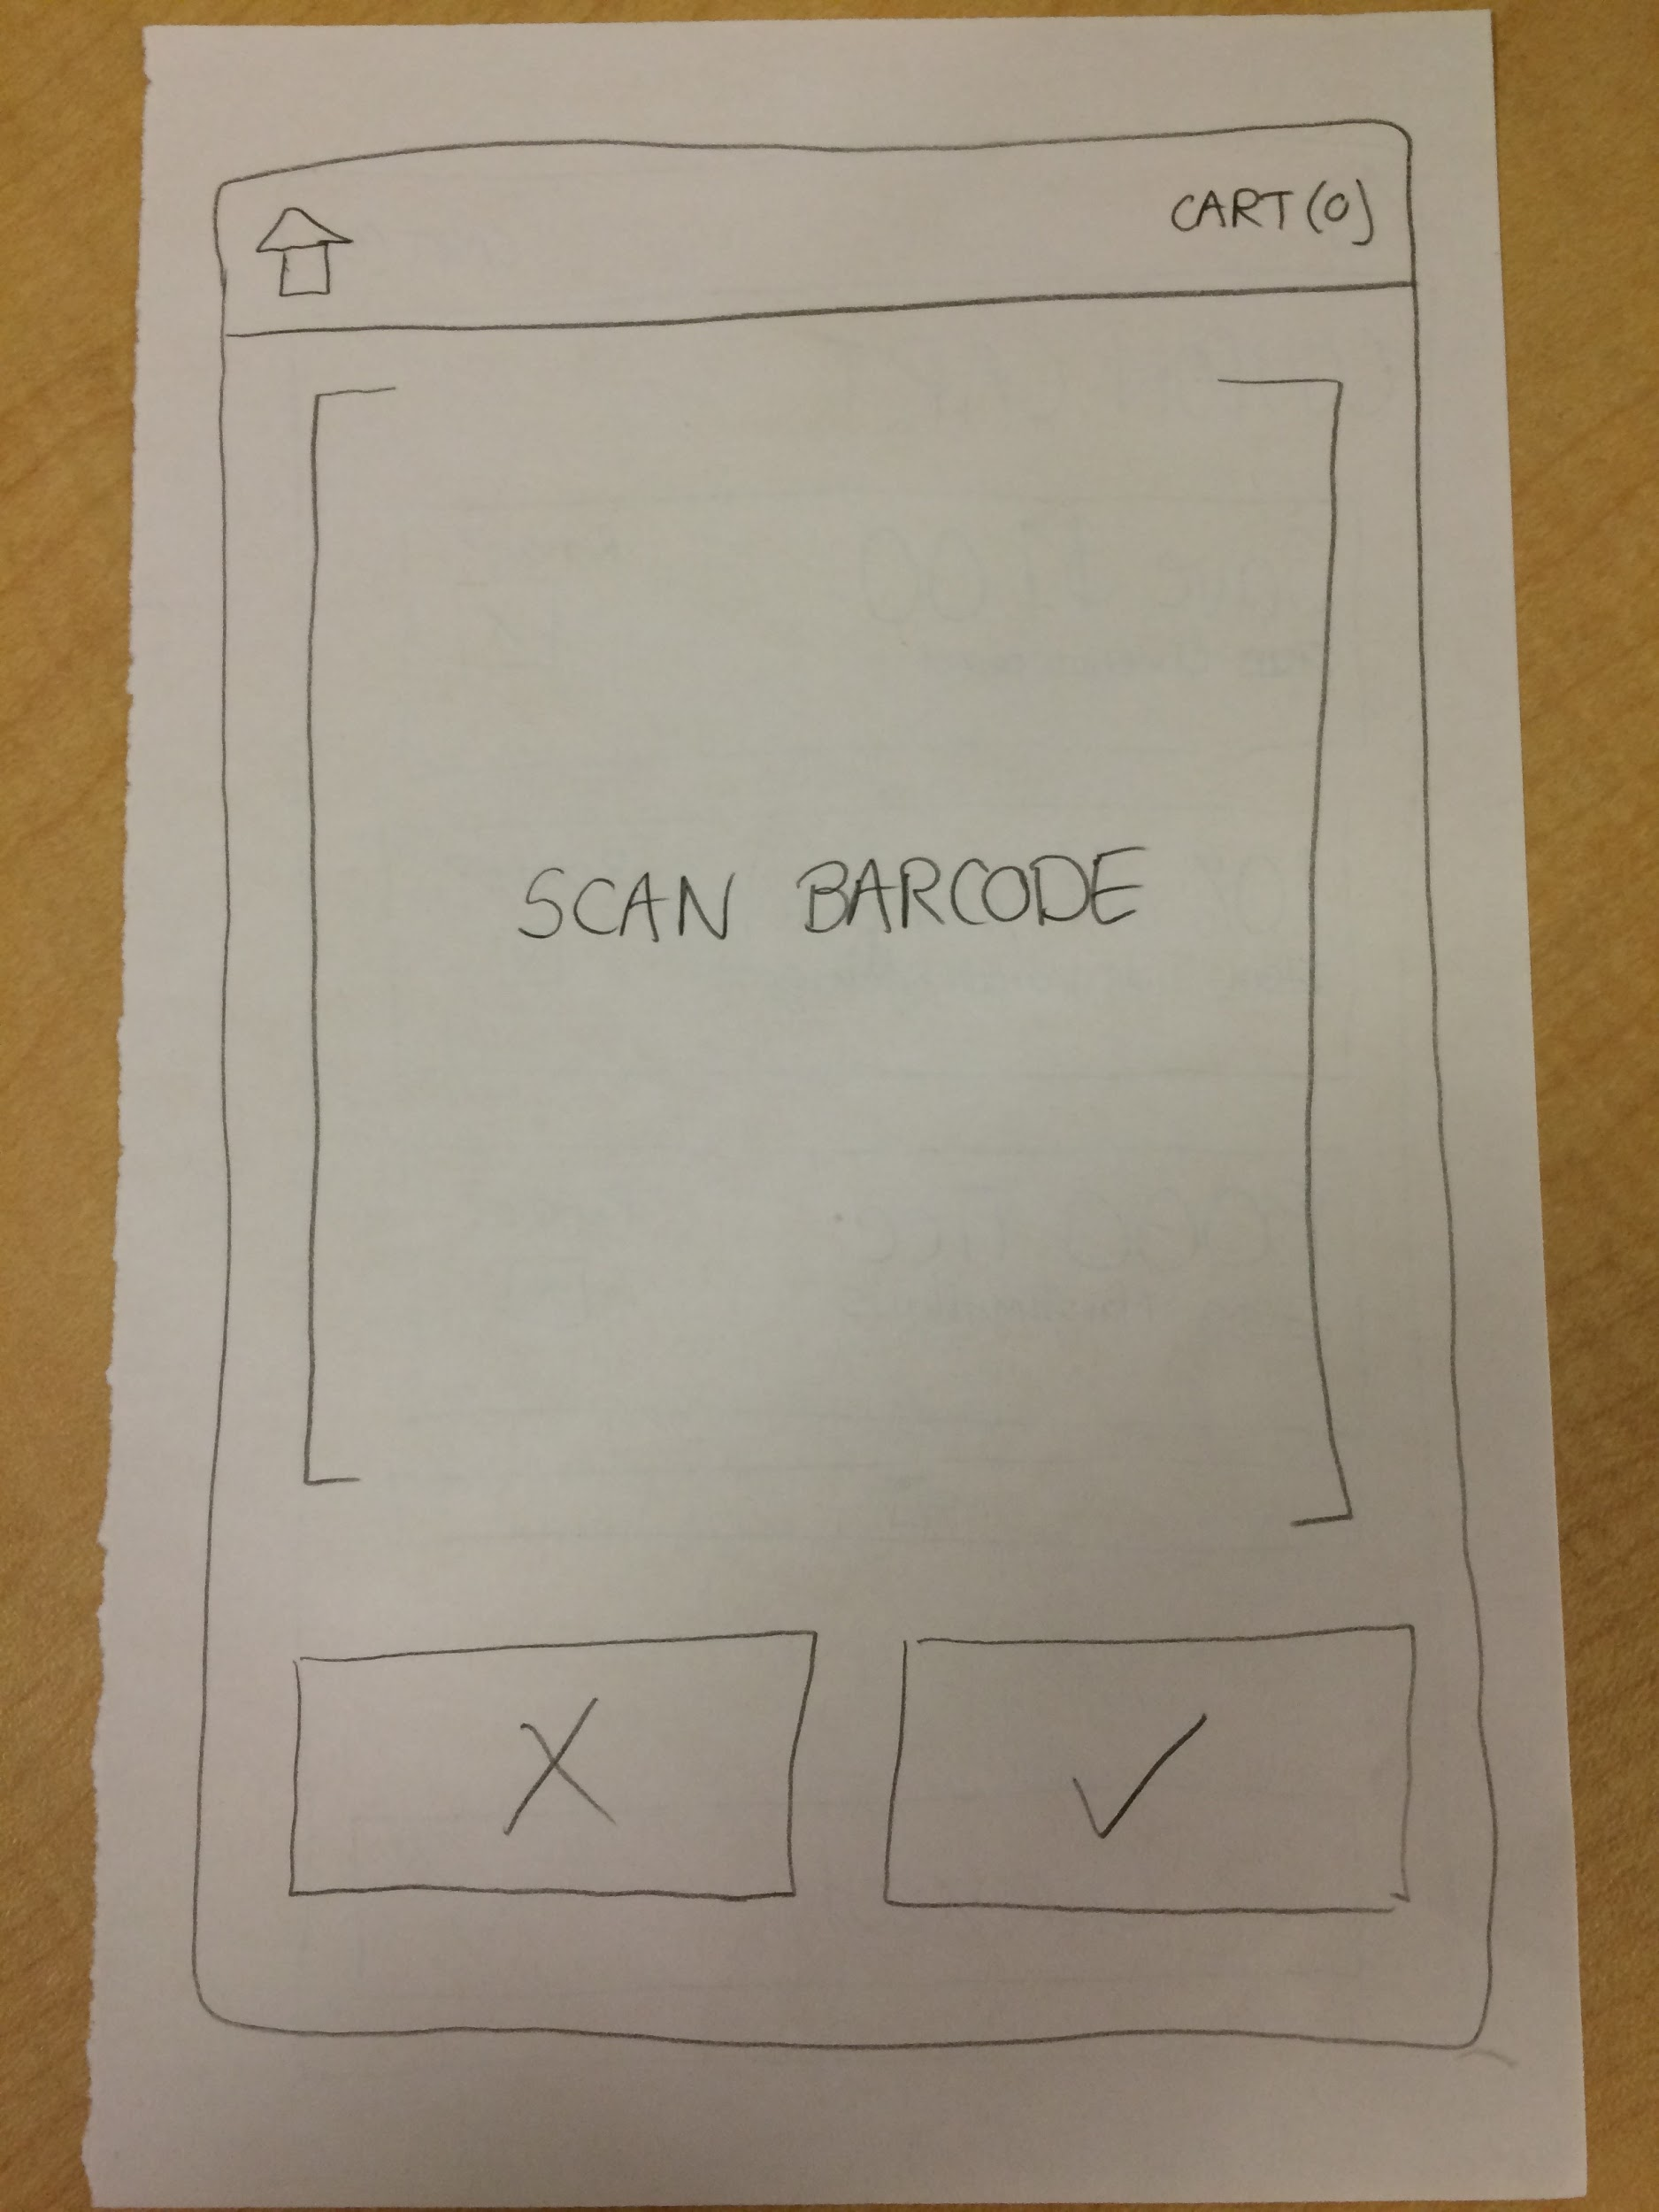 CART (0)
SCAN BARCODE